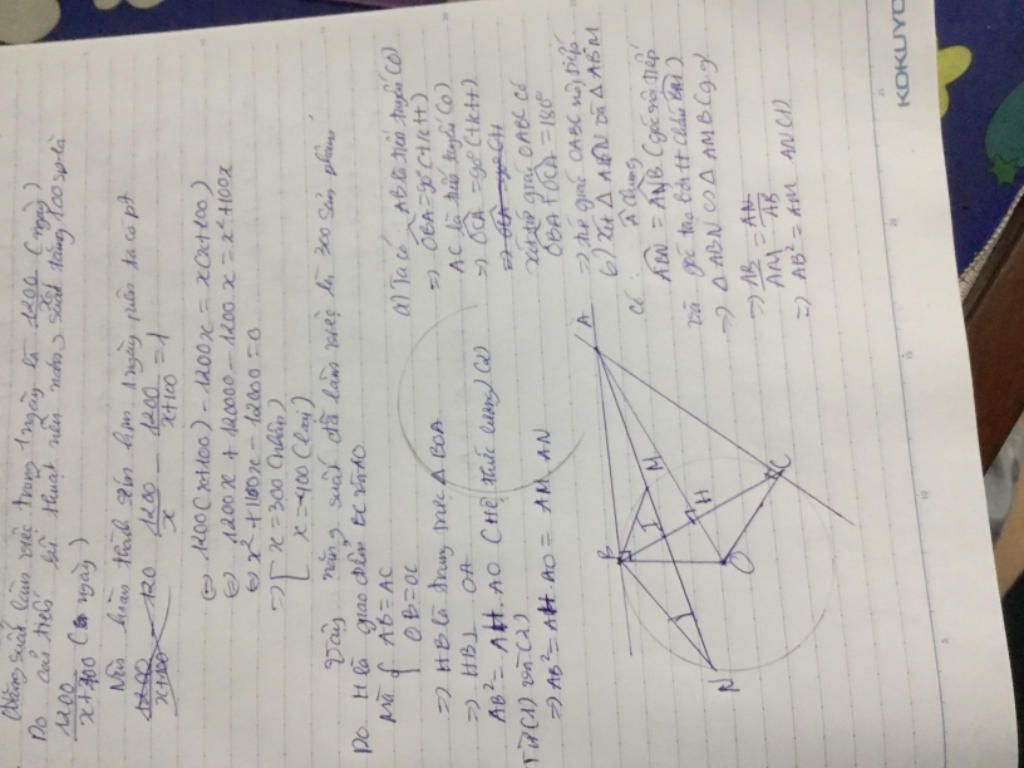 năng suất làm việc trong 1 ngày là 1200 (ngày)
Do cải tiến kĩ thuật nên năng suất tăng 100sp là
1200
x+100 ( ngày )
Nên hoàn thành sớm hơn 1 ngày nên ta có pt
1200/x - 1200/x+100 = 1
⇔ 1200(x+100) - 1200x = x(x+100)
⇔ 1200x + 12000 - 1200x = x²+100x
⇔ x²+100x - 12000 = 0
⇒ [ x = 300 (nhận)
x = -400 (loại)
Vậy năng suất làm việc là 300 sản phẩm
Do H là giao điểm BC và AO
Mà { AB = AC
OB = OC
⇒ HB là trung trực Δ BOA
⇒ HB ⊥ OA
AB² = AH.AO (Hệ thức lượng) (2)
Từ (1) và (2)
⇒ AB² = AH.AO = AM.AN
a) Ta có: AB là tiếp tuyến (O)
⇒ OBA = 90° (tctt)
AC là tiếp tuyến (O)
⇒ OCA = 90° (tctt)
xét tứ giác OABC có
OBA + OCA = 180°
⇒ tứ giác OABC nội tiếp
b) Xét Δ ABN và Δ ABM
có: A chung
ABN = ANB (góc nội tiếp
và góc tạo bởi tt chắn BM)
⇒ Δ ABN ∽ Δ AMB (g.g)
⇒ AB/AM = AN/AB
⇒ AB² = AM.AN (1)
B
A
M
I
H
C
O
N
KOKUYO